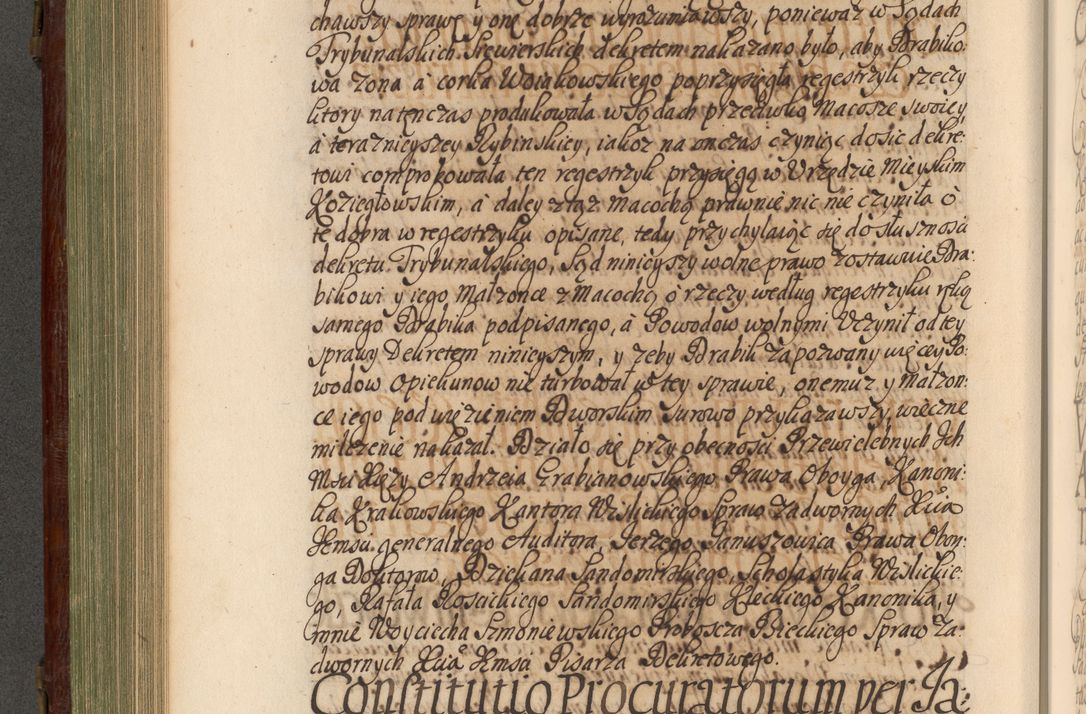 chawszy sprawę y onę dobrze wyrozumiawszy, ponieważ w Sądach
Trybunalskich Siewierskich dekretem nakazano było, aby Drabiko:
wa zona a corka Woiakowskiego poprzysięgła regestrzyk rzeczy
ktory natęnczas produkowała w Sądach przeciwko Macosze swoiey
a teraznieyszey Rybinskiey, iakoz na onczas czyniąc dosic dekre:
towi comprobowała ten regestrzyk przysięgą w Urzędzie Mieyskim
Koziegłowskim, a daley z tąz Macochą prawnie nic nie czyniła o
te dobra w regestrzyku opisane, tedy przychylaiąc się do słusznosci
dekretu Trybunalskiego, Sąd ninieyszy wolne prawo zostawuie Dra:
bikowi y iego Małzonce z Macochą o rzeczy według regestrzyku ręką
samego Drabika podpisanego, a Powodow wolnymi Uczynił od tey
sprawy Dekretem ninieyszym, y zeby Drabik zapozwany więcey Po:
wodow Opiekunow nie turbował w tey sprawie, onemuz y małzon:
ce iego pod więzieniem Dworskim surowo przykazawszy, wieczne
milczenie nakazał. Działo się przy obecnosci Przewielebnych Ich
Msci Xięzy Andrzeia Grabianowskiego Prawa Oboyga, Kanoni:
ka Krakowskiego Kantora Wislickiego Spraw Zadwornych Xcia
Jmsci generalnego Auditora, Jerzego Januszowica Prawa Oboy:
ga Doktorow, Dziekana Sandomirskiego, Scholastyka Wislickie:
go, Rafała Roscickiego Sandomirskiego Kleckiego Kanonika, y
mnie Woyciecha Szmoniewskiego Proboscza Bieckiego Spraw Za:
dwornych Xcia Jmsci Pisarza Dekretowego.
Constitutio Procuratorum per Ja: